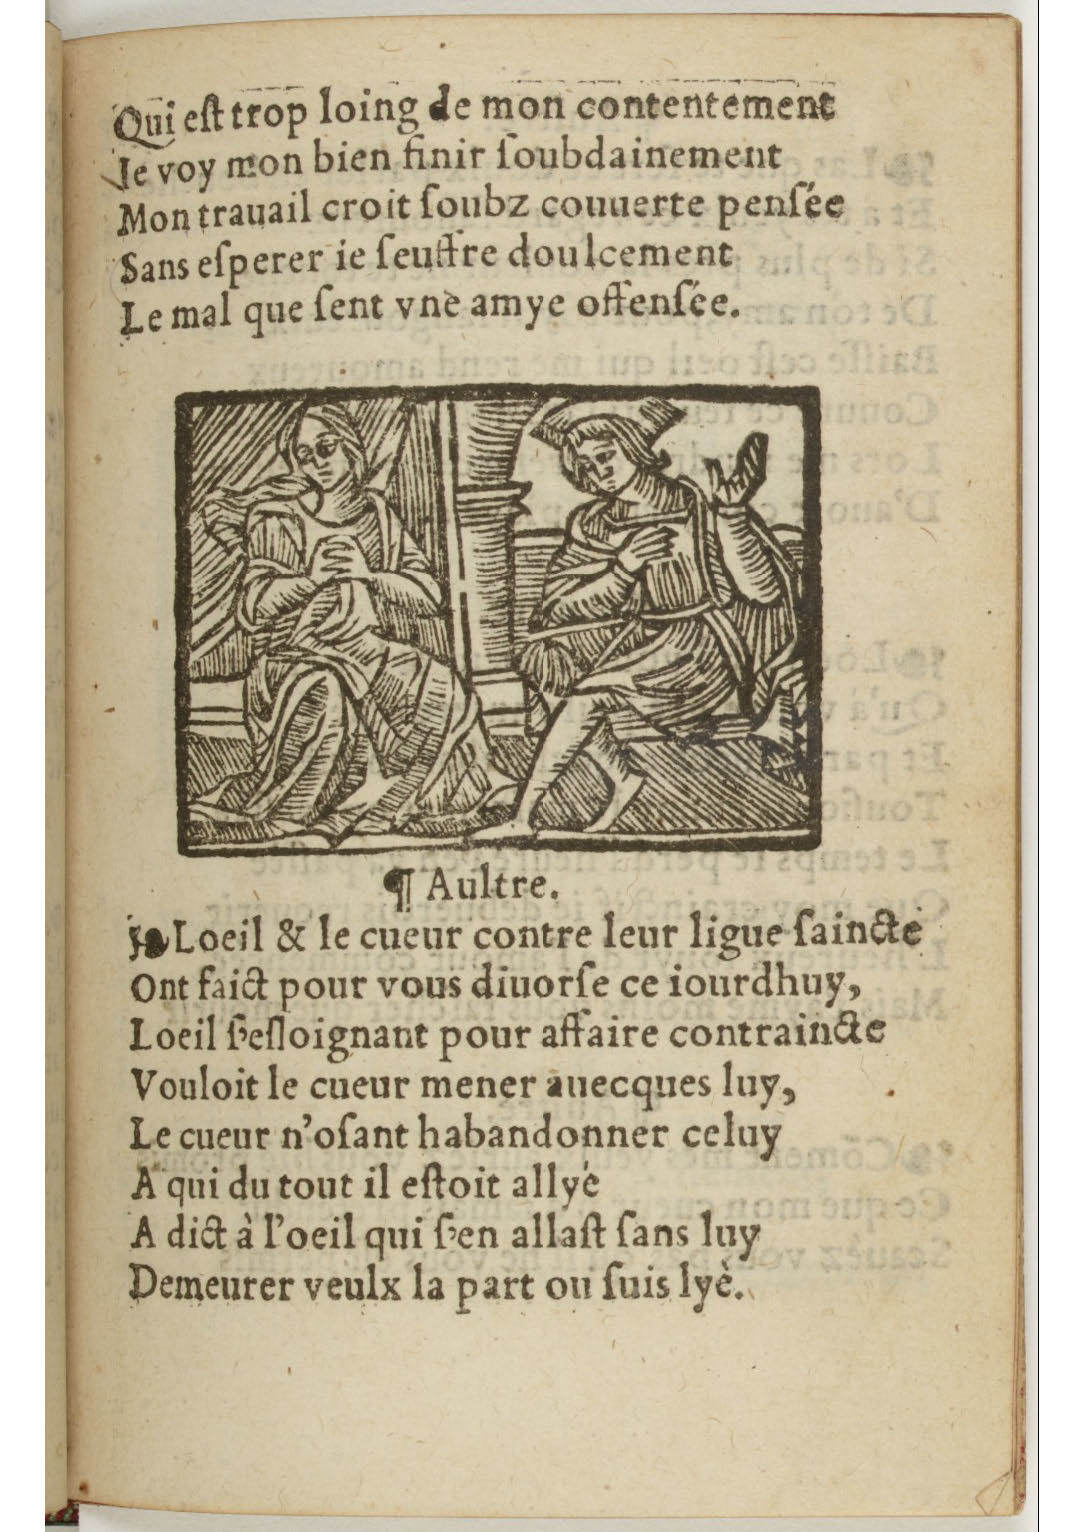 Qui eſt trop loing de mon contentement
Je voy mon bien finir ſoubdainement
Mon trauail croit ſoubz couuerte penſée
Sans eſperer ie ſeuffre doulcement
Le mal que ſent vne amye offenſée.
¶ Aultre.
❧ Loeil & le cueur contre leur ligue ſaincte
Ont faict pour vous diuorſe ce iourdhuy,
Loeil ſ'eſloignant pour affaire contraincte
Vouloit le cueur mener auecques luy,
Le cueur n'oſant habandonner celuy
A qui du tout il eſtoit allyé
A dict à l'oeil qui ſ'en allaſt ſans luy
Demeurer veulx la part ou ſuis lyè.